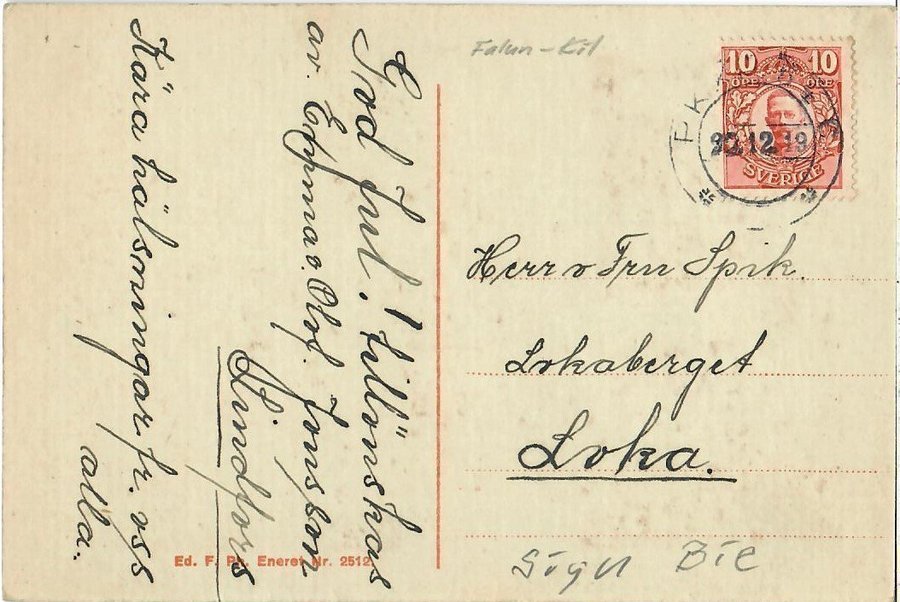 God Jul. tillönskas
av. Emma o. Olof. Jonsson
Lindfors
Kära hälsningar. fr. oss
alla.
Falun - Kil
10 10
ÖRE ÖRE
SVERIGE
PK
12.19
Herr o Fru Spik.
Lokaberget
Loka.
Ed. F. Eneret Nr. 2512.
Sign Bie